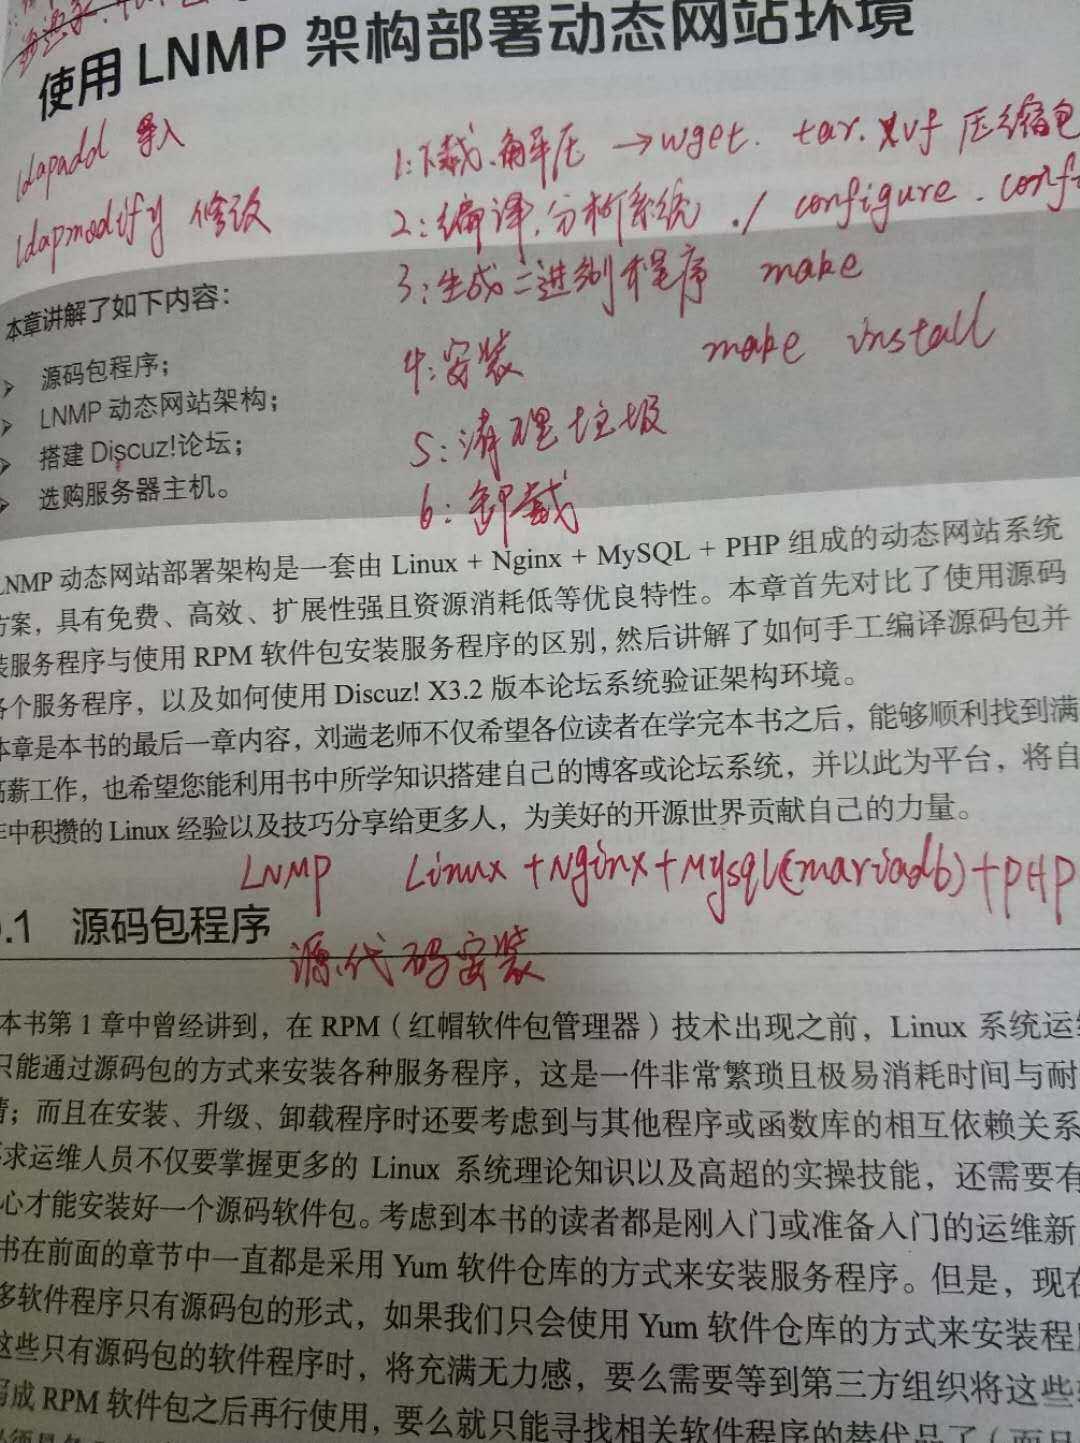 使用 LNMP 架构部署动态网站环境
ldapadd 导入
ldapmodify 修改
1:下载.解压 →wget. tar. xvf 压缩包
2:编译.分析系统 ./ configure . conf
3:生成二进制程序 make
4:安装 make install
5:清理垃圾
6:卸载
本章讲解了如下内容：
源码包程序；
LNMP 动态网站架构；
搭建 Discuz!论坛；
选购服务器主机。
LNMP 动态网站部署架构是一套由 Linux + Nginx + MySQL + PHP 组成的动态网站系统
方案，具有免费、高效、扩展性强且资源消耗低等优良特性。本章首先对比了使用源码
装服务程序与使用 RPM 软件包安装服务程序的区别，然后讲解了如何手工编译源码包并
各个服务程序，以及如何使用 Discuz! X3.2 版本论坛系统验证架构环境。
本章是本书的最后一章内容，刘遄老师不仅希望各位读者在学完本书之后，能够顺利找到满
高薪工作，也希望您能利用书中所学知识搭建自己的博客或论坛系统，并以此为平台，将自
作中积攒的 Linux 经验以及技巧分享给更多人，为美好的开源世界贡献自己的力量。
LNMP Linux +Nginx+Mysql(mariadb)+PHP
.1 源码包程序
源代码安装
本书第 1 章中曾经讲到，在 RPM（红帽软件包管理器）技术出现之前，Linux 系统运维
只能通过源码包的方式来安装各种服务程序，这是一件非常繁琐且极易消耗时间与耐
情；而且在安装、升级、卸载程序时还要考虑到与其他程序或函数库的相互依赖关系
求运维人员不仅要掌握更多的 Linux 系统理论知识以及高超的实操技能，还需要有
心才能安装好一个源码软件包。考虑到本书的读者都是刚入门或准备入门的运维新
书在前面的章节中一直都是采用 Yum 软件仓库的方式来安装服务程序。但是，现在
多软件程序只有源码包的形式，如果我们只会使用 Yum 软件仓库的方式来安装程序
这些只有源码包的软件程序时，将充满无力感，要么需要等到第三方组织将这些
写成 RPM 软件包之后再行使用，要么就只能寻找相关软件程序的替代品了（而且